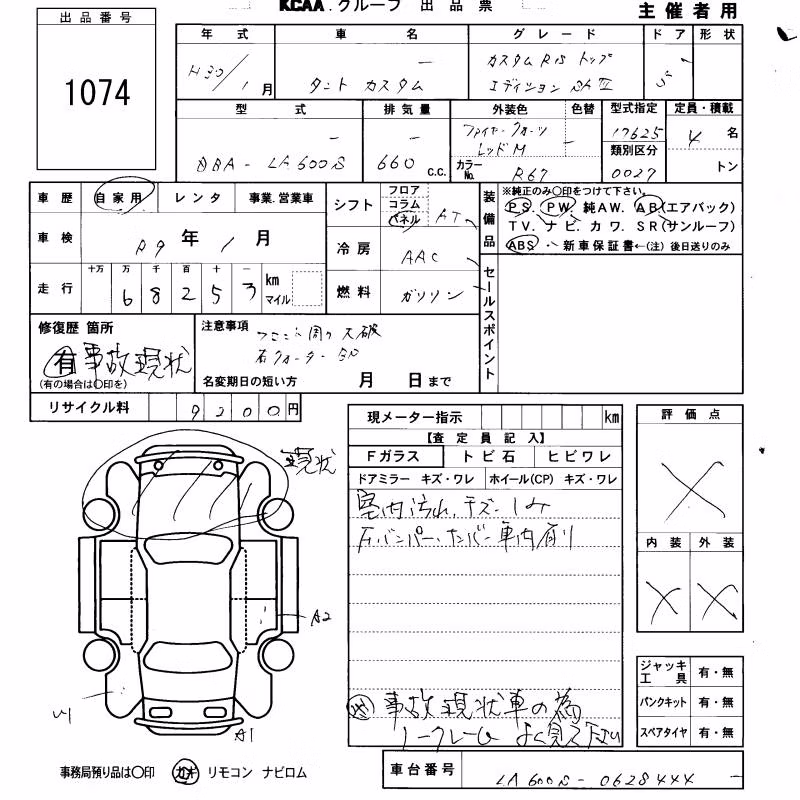 KCAA.グループ 出品票
主催者用
出品番号
1074
年式 車名 グレード ドア 形状
H30/1月 タント カスタム カスタムRS トップエディションSAⅢ 5
型式 排気量 外装色 色替 型式指定 定員・積載
DBA-LA600S 660 c.c. ファイヤークォーツレッドM 17625 4名
カラーNo. R67 類別区分 0027 トン
車歴 自家用 レンタ 事業.営業車
車検 R9年1月
走行 十万 万 千 百 十 一 km マイル
68253
シフト フロア コラム パネル AT
冷房 AAC
燃料 ガソリン
装備品 ※純正のみ○印をつけて下さい。
PS. PW. 純AW. AB(エアバック)
TV. ナビ. カワ. SR(サンルーフ)
ABS・新車保証書←(注)後日送りのみ
セールスポイント
修復歴 箇所
有 事故現状
(有の場合は○印を)
注意事項
大破
右クォーター
名変期日の短い方 月 日まで
リサイクル料 9200円
現メーター指示 km
【査定員記入】
Fガラス トビ石 ヒビワレ
ドアミラー キズ・ワレ ホイール(CP) キズ・ワレ
室内汚れ.キズ.シミ
F.バンパー.ナンバー車内有り
事故現状車の為
ノークレーム よく見て下さい
評価点
X
内装 外装
X X
ジャッキ工具 有・無
パンクキット 有・無
スペアタイヤ 有・無
現状
A2
U1
A1
事務局預り品は○印 カギ リモコン ナビロム
車台番号 LA600S-0628444